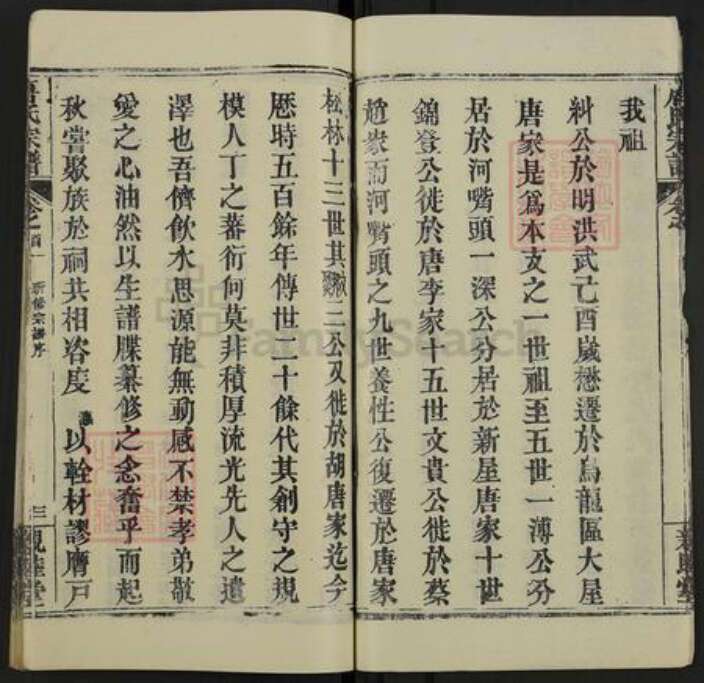 我祖
糾公於明洪武己酉嵗懋遷於烏龍區大屋
唐家是爲本支之一世祖至五世一溥公分
居於河嘴頭一深公分居於新屋唐家十世
錦登公徙於唐李家十五世文貴公徙於蔡
趙家而河嘴頭之九世養性公復遷於唐家
松林十三世其 三公又徙於胡唐家迄今
厯時五百餘年傳世二十餘代其創守之規
模人丁之蕃衍何莫非積厚流光先人之遺
澤也吾儕飲水思源能無動感不禁孝弟敬
愛之心油然以生譜牒纂修之念奮乎而起
秋嘗聚族於祠共相咨度 以輇材謬膺戸
唐氏宗譜
卷之首一
新修宗譜序
三
親睦堂
FamilySearch